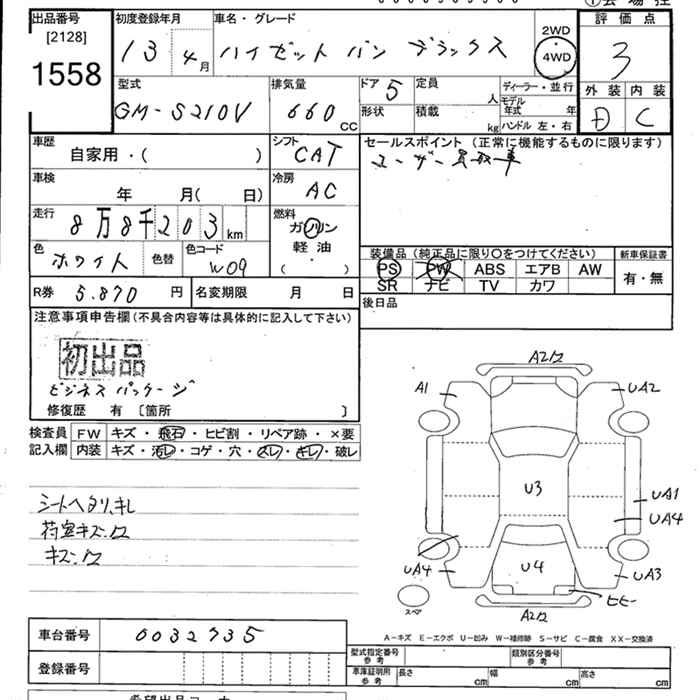 出品番号
[2128]
1558
初度登録年月
13 4月
車名・グレード
ハイゼットバン デラックス
2WD
4WD
評価点
3
型式
GM-S210V
排気量
660 cc
ドア 5
形状
定員 人
積載 kg
ディーラー・並行
モデル年式 年
ハンドル 左・右
外装 内装
D C
車歴
自家用・( )
シフト
CAT
セールスポイント (正常に機能するものに限ります)
ユーザー買取車
車検
年 月( 日)
冷房
AC
走行
8万8千203km
燃料
ガソリン
軽油
( )
色
ホワイト
色替
色コード
W09
装備品 (純正品に限り○をつけてください)
PS PW ABS エアB AW
SR ナビ TV カワ
新車保証書
有・無
R券 5,870 円
名変期限 月 日
後日品
注意事項申告欄(不具合内容等は具体的に記入して下さい)
初出品
ビジネスパッケージ
修復歴 有 [箇所 ]
検査員記入欄
FW キズ・飛石・ヒビ割・リペア跡・×要
内装 キズ・汚レ・コゲ・穴・スレ・キレ・破レ
シートヘタリ、キレ
荷室キズ、凹
キズ、凹
A2凹
A1
UA2
U3
UA1
UA4
UA4
U4
UA3
ヒビ
スペア
A2凹
A-キズ E-エクボ U-凹み W-補修跡 S-サビ C-腐食 XX-交換済
車台番号
0032735
登録番号
型式指定番号
参考
類別区分番号
参考
車庫証明用
参考
長さ cm
幅 cm
高さ cm